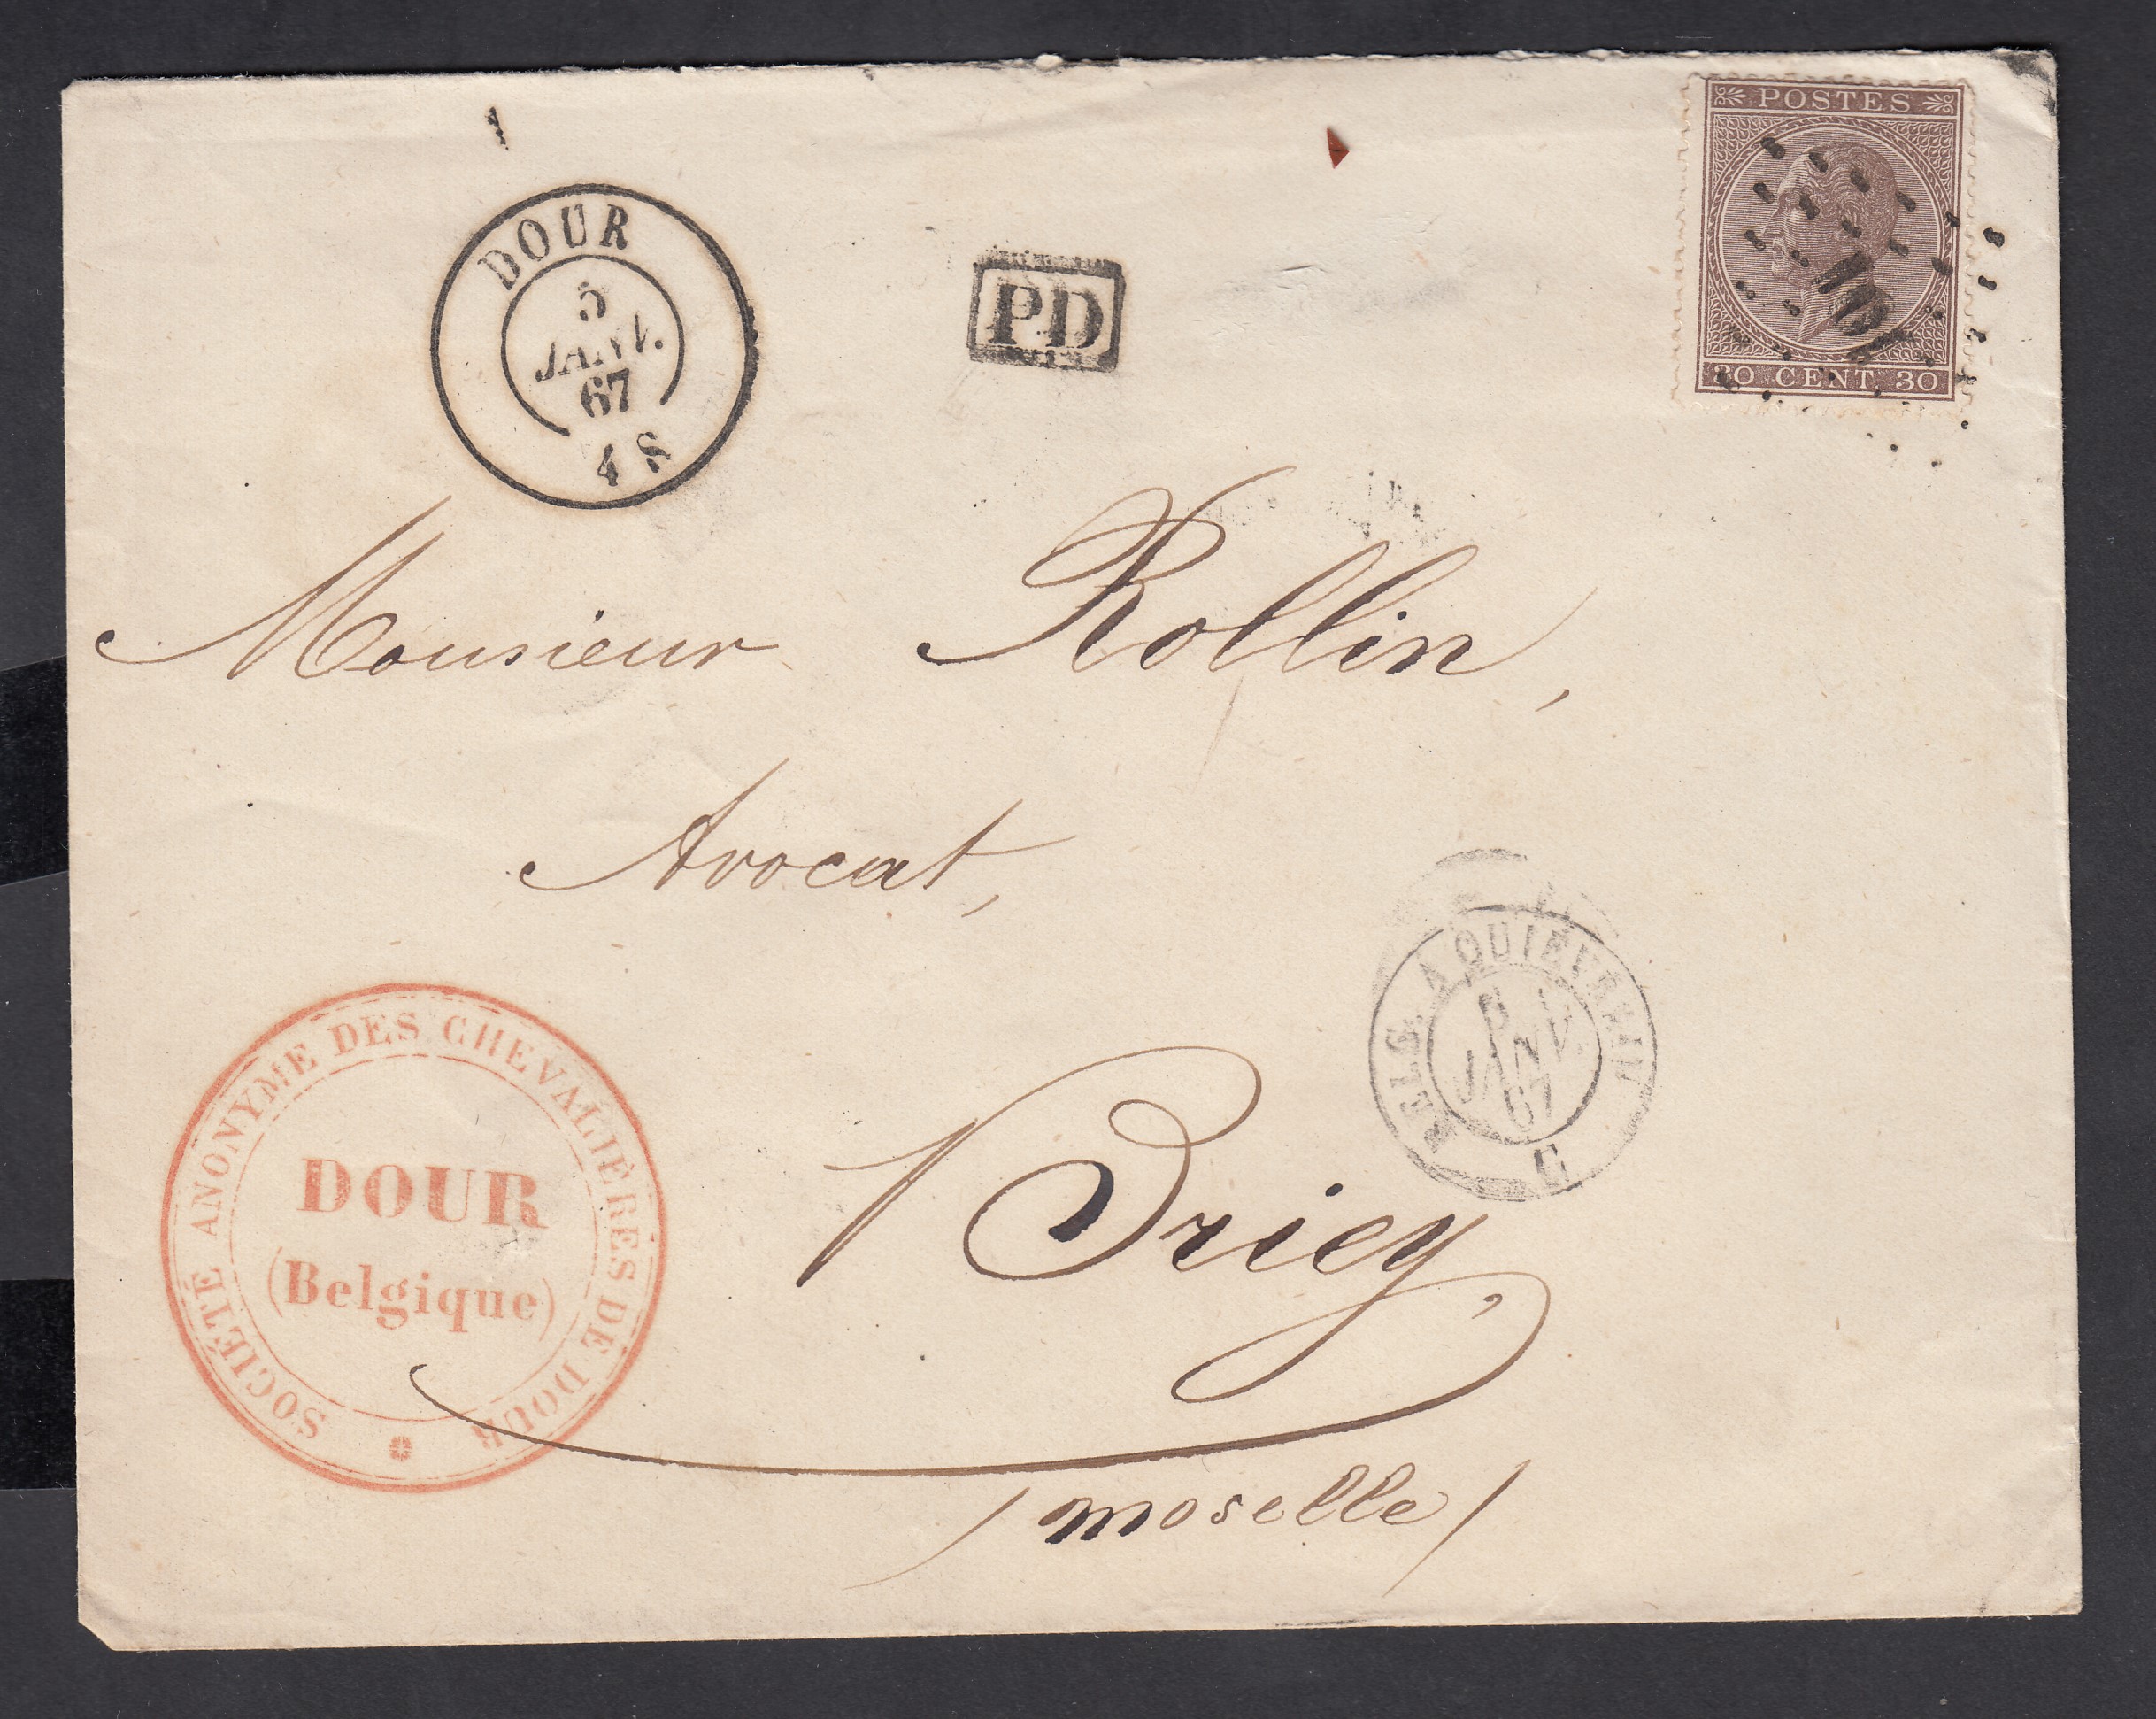 POSTES
30 CENT. 30
DOUR
5
JANV.
67
4 S
PD
Monsieur Rollin,
Avocat,
BELG. A QUIÉVRAIN
5
JANV.
67
C
Briey,
/moselle/
SOCIÉTÉ ANONYME DES CHEVALIÈRES DE DOUR
DOUR
(Belgique)